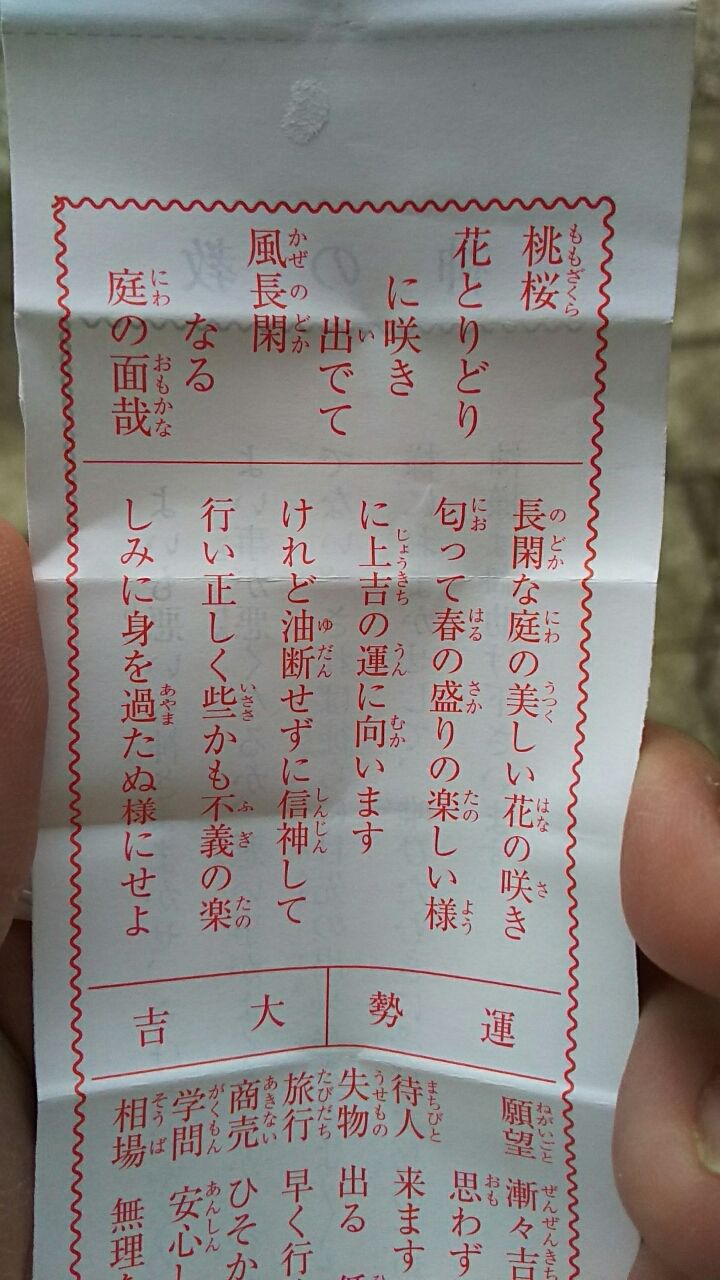 桃桜
花とりどり
に咲き
出でて
風長閑
なる
庭の面哉
長閑な庭の美しい花の咲き
匂って春の盛りの楽しい様
に上吉の運に向います
けれど油断せずに信神して
行い正しく些かも不義の楽
しみに身を過たぬ様にせよ
運勢
大吉
願望 漸々吉
思わず
待人 来ます
失物 出る
旅行 早く行
商売 ひそか
学問 安心し
相場 無理